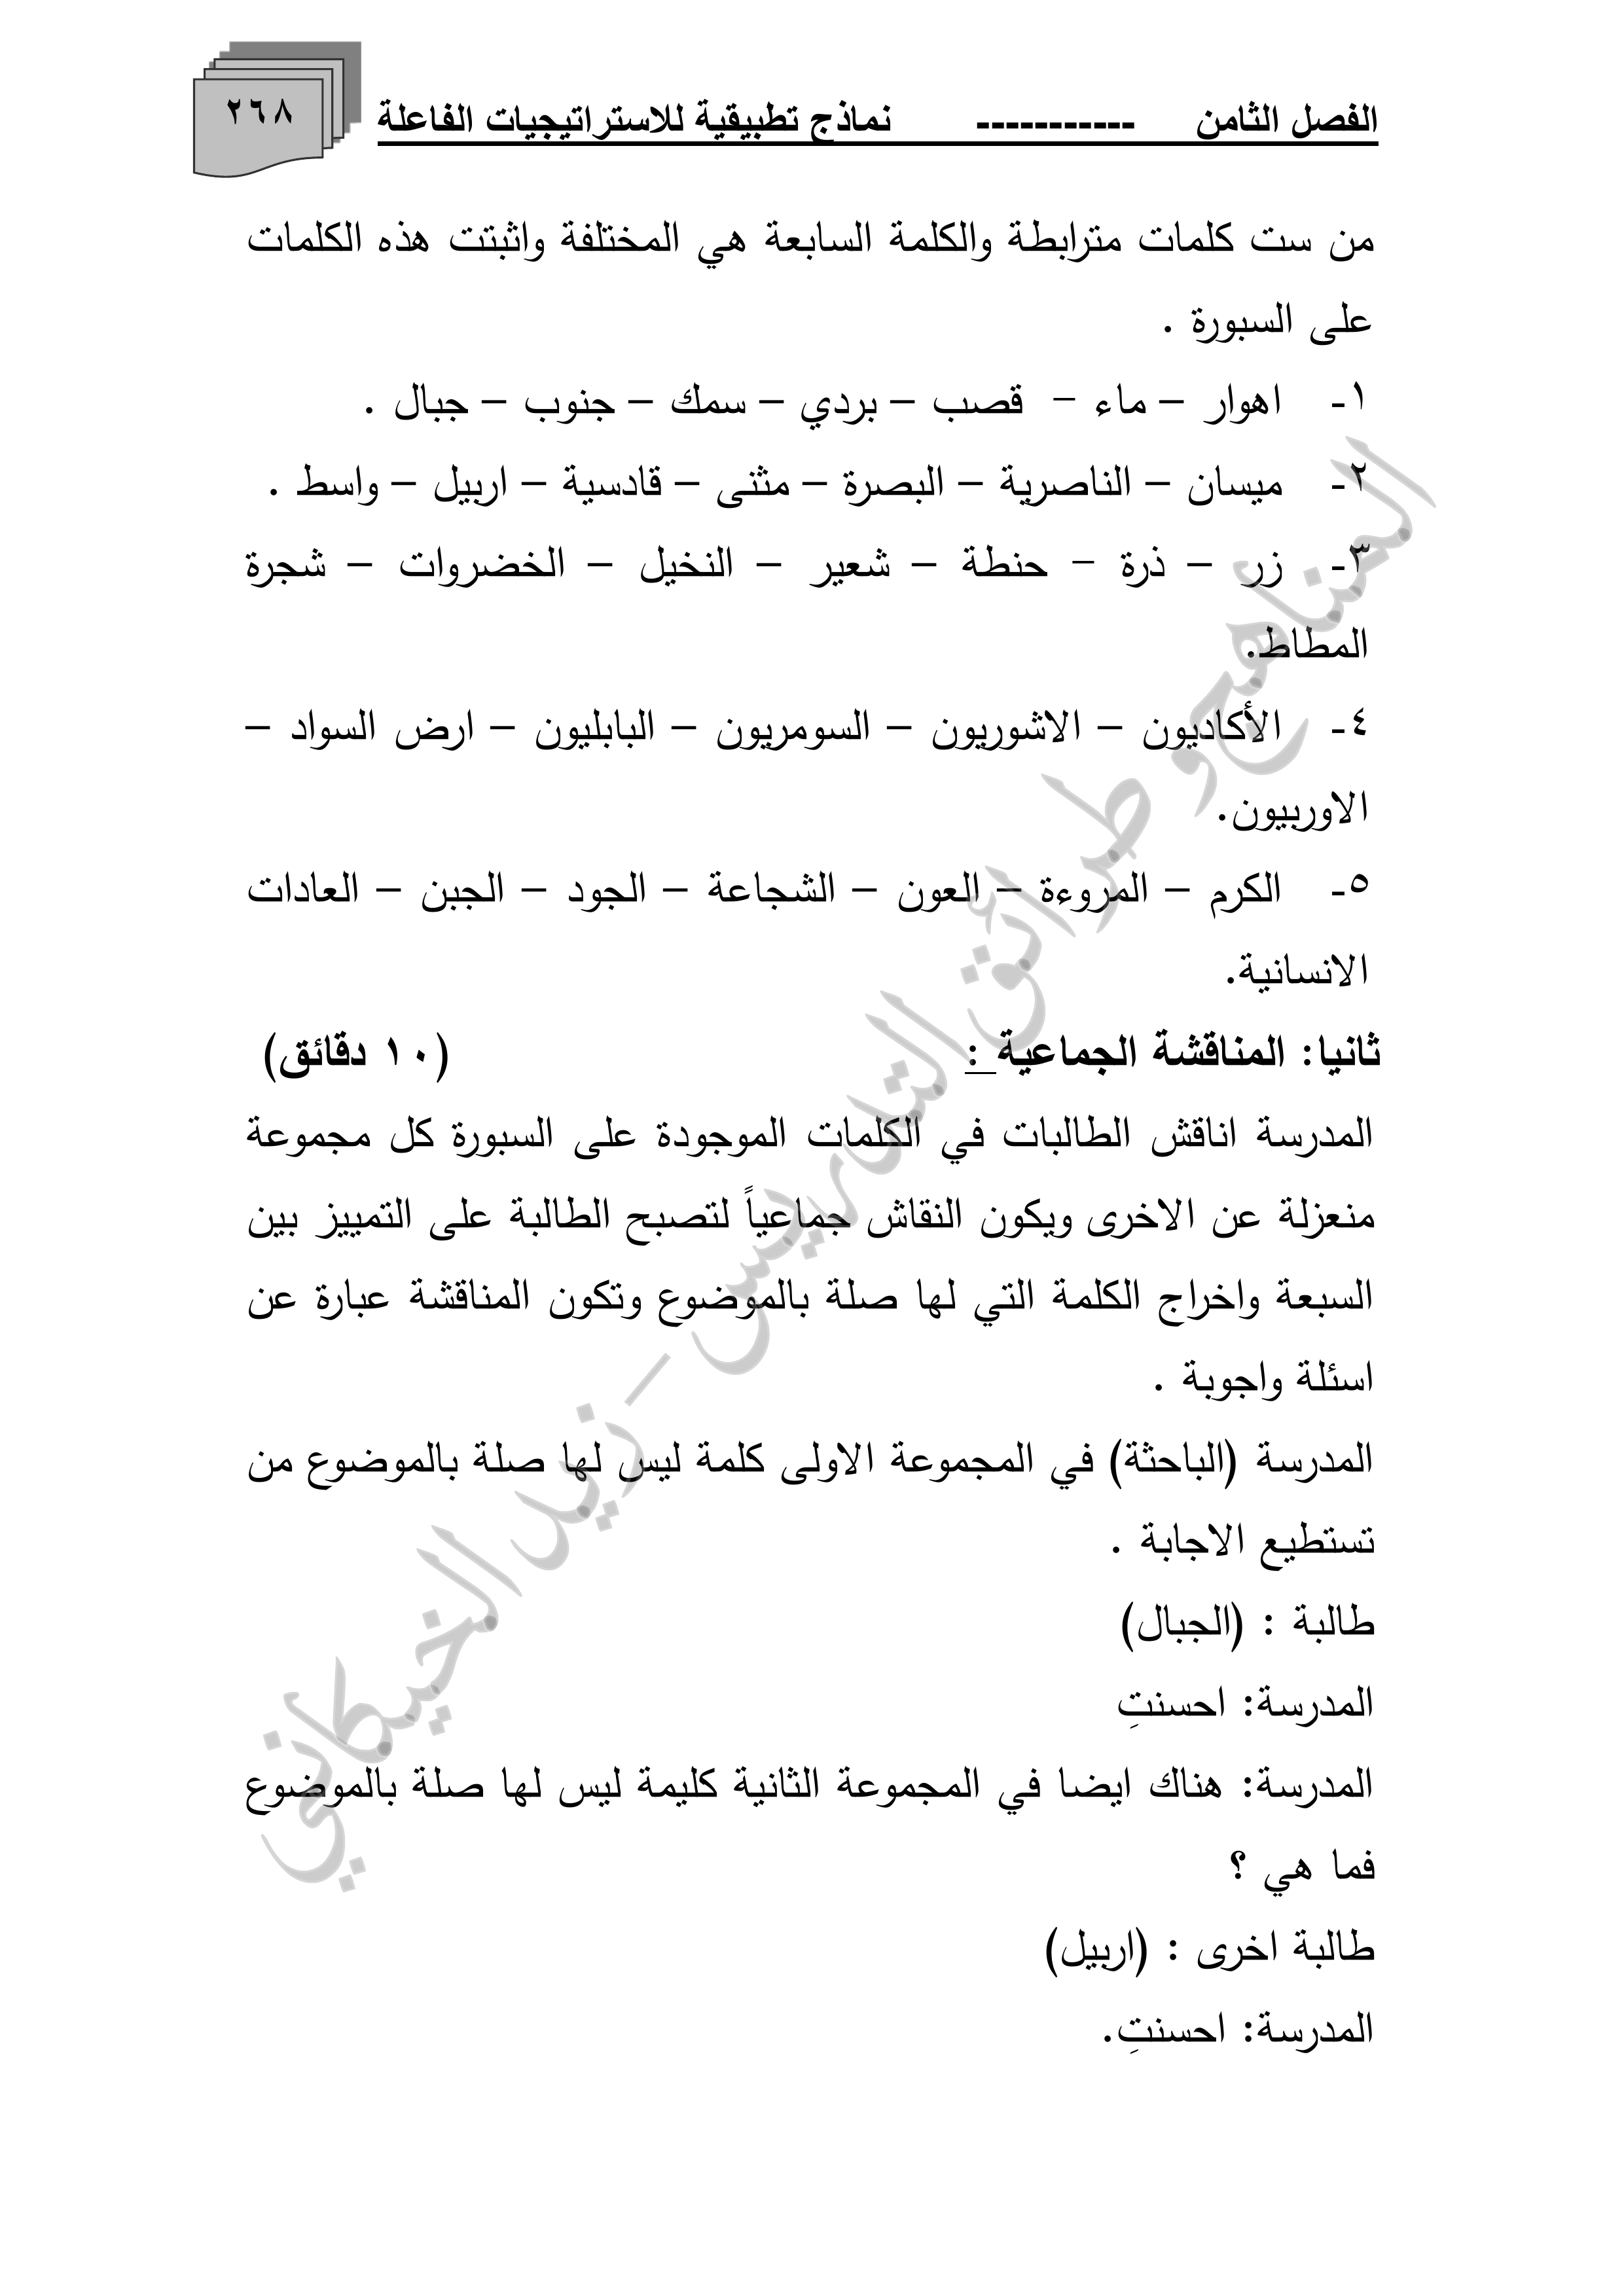 الفصل الثامن ----------- نماذج تطبيقية للاستراتيجيات الفاعلة
٢٦٨
من ست كلمات مترابطة والكلمة السابعة هي المختلفة واثبتت هذه الكلمات
على السبورة .
١- اهوار – ماء – قصب – بردي – سمك – جنوب – جبال .
٢- ميسان – الناصرية – البصرة – مثنى – قادسية – اربيل – واسط .
٣- زر – ذرة – حنطة – شعير – النخيل – الخضروات – شجرة
المطاط.
٤- الأكاديون – الاشوريون – السومريون – البابليون – ارض السواد –
الاوربيون.
٥- الكرم – المروءة – العون – الشجاعة – الجود – الجبن – العادات
الانسانية.
ثانيا: المناقشة الجماعية : (١٠ دقائق)
المدرسة اناقش الطالبات في الكلمات الموجودة على السبورة كل مجموعة
منعزلة عن الاخرى ويكون النقاش جماعياً لتصبح الطالبة على التمييز بين
السبعة واخراج الكلمة التي لها صلة بالموضوع وتكون المناقشة عبارة عن
اسئلة واجوبة .
المدرسة (الباحثة) في المجموعة الاولى كلمة ليس لها صلة بالموضوع من
تستطيع الاجابة .
طالبة : (الجبال)
المدرسة: احسنتِ
المدرسة: هناك ايضا في المجموعة الثانية كليمة ليس لها صلة بالموضوع
فما هي ؟
طالبة اخرى : (اربيل)
المدرسة: احسنتِ.
المناهج و طرائق التدريس - زيد الخيكاني